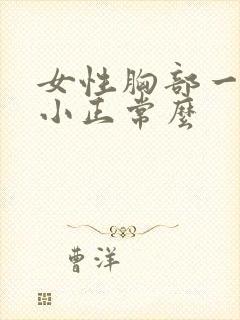 女性胸部一
小正常麼
曹洋